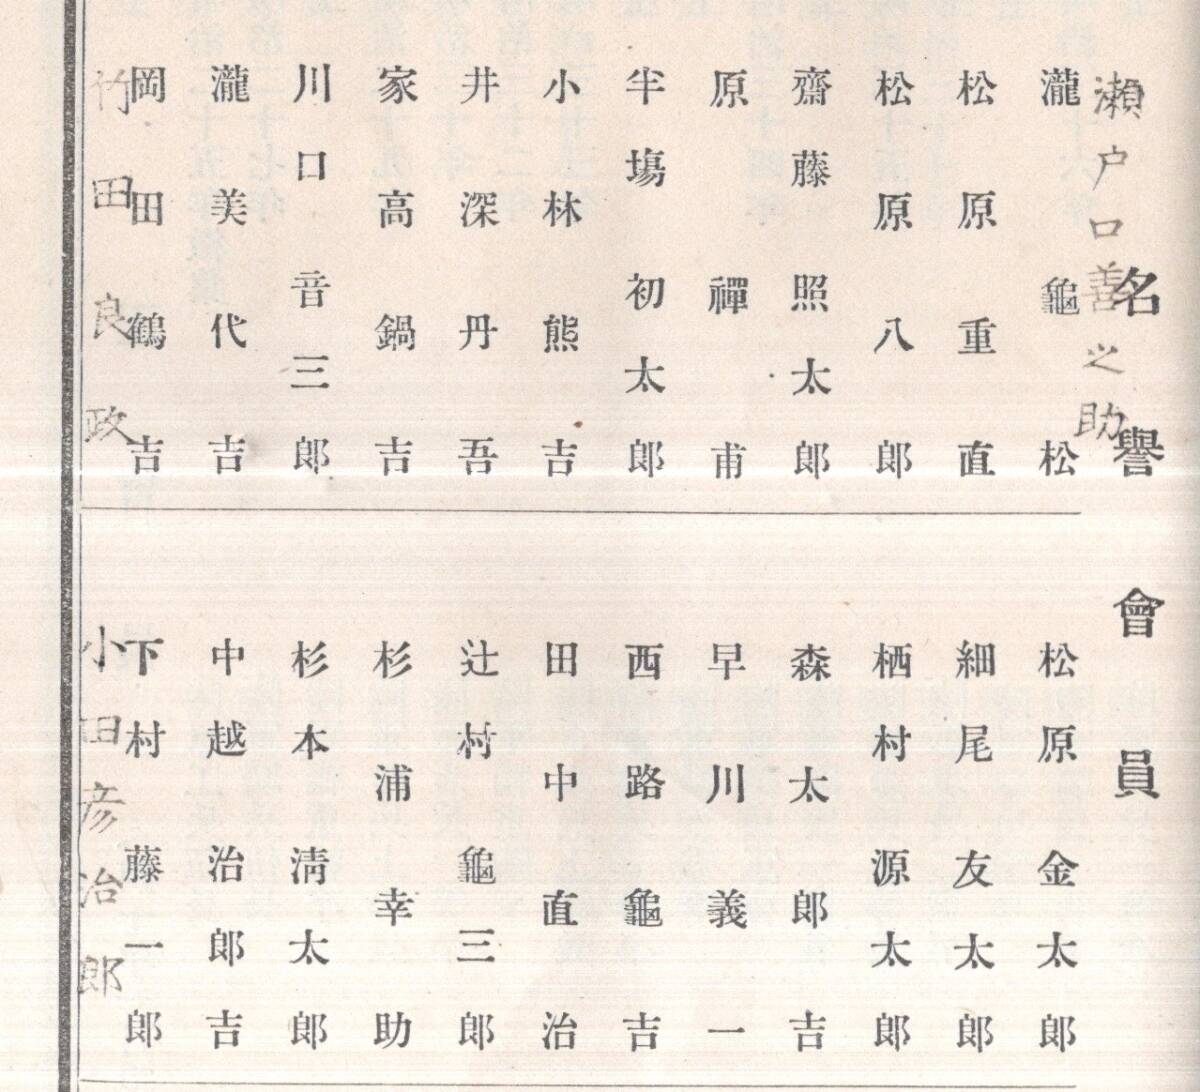 名譽會員
瀬戸口善之助
瀧龜松
松原重直
松原八郎
齋藤照太郎
原禪甫
半塲初太郎
小林熊吉
井深丹吾
家高鍋吉
川口音三郎
瀧美代吉
岡田鶴吉
竹田良政
松原金太郎
細尾友太郎
栖村源太郎
森太郎吉
早川義一
西路龜吉
田中直治
辻村龜三郎
杉浦幸助
杉本淸太郎
中越治郎吉
下村藤一郎
小田彦治郎